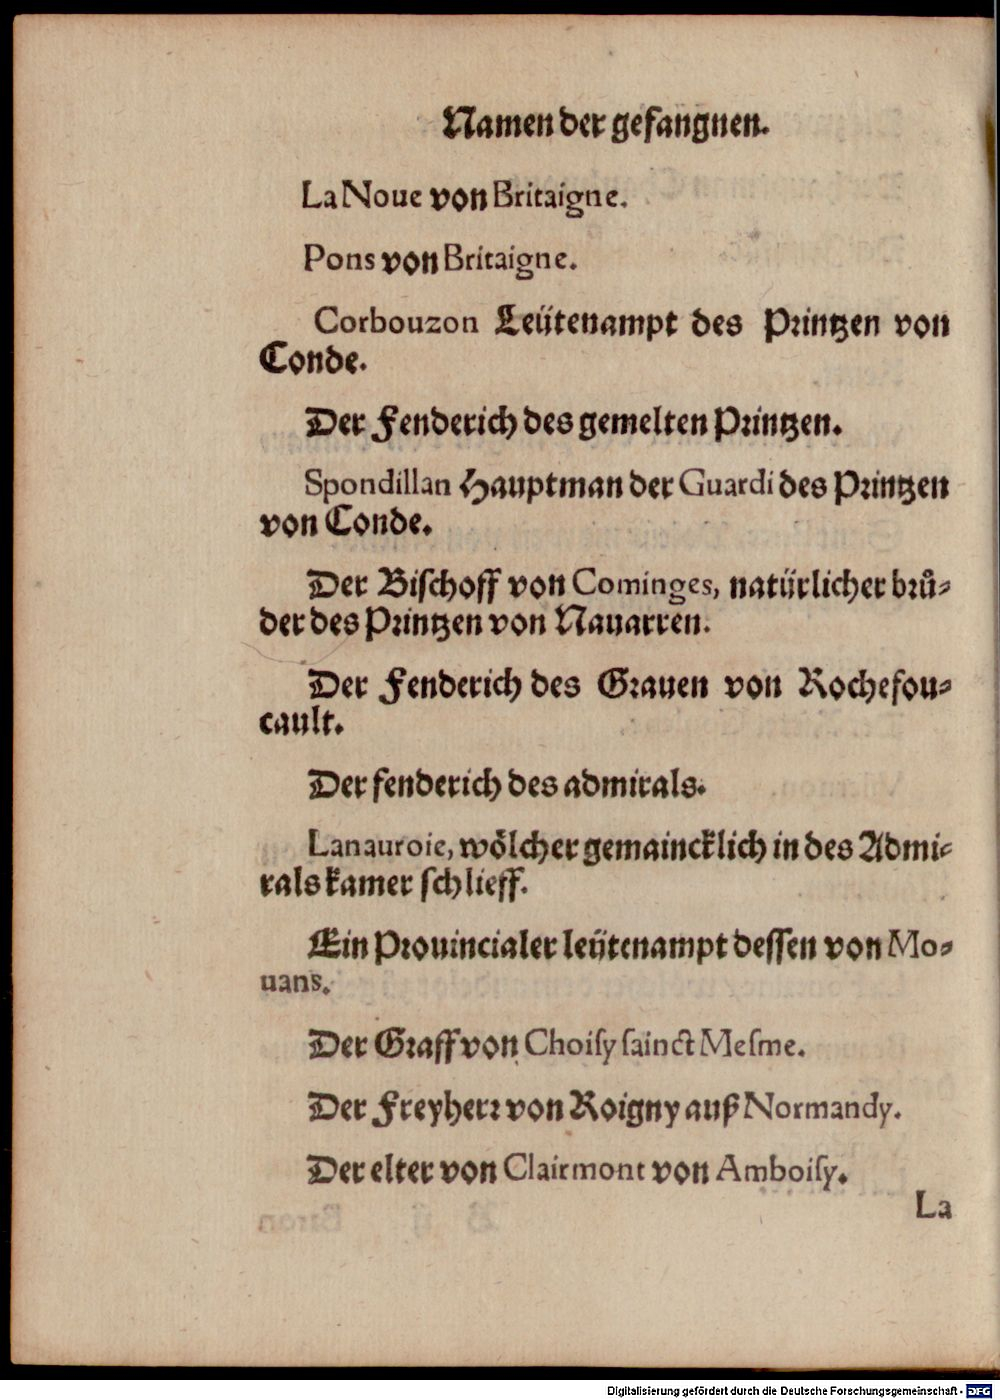 Namen der gefangnen.
La Noue von Britaigne.
Pons von Britaigne.
Corbouzon Leütenampt des Printzen von
Conde.
Der Fenderich des gemelten Printzen.
Spondillan Hauptman der Guardi des Printzen
von Conde.
Der Bischoff von Cominges, natürlicher brů⸗
der des Printzen von Nauarren.
Der Fenderich des Grauen von Rochefou⸗
cault.
Der fenderich des admirals.
Lanauroie, wőlcher gemaincklich in des Admi⸗
rals kamer schlieff.
Ein Prouincialer leütenampt dessen von Mo⸗
uans.
Der Graff von Choiſy ſainct Meſme.
Der Freyherr von Roigny auß Normandy.
Der elter von Clairmont von Amboiſy.
La
Digitalisierung gefördert durch die Deutsche Forschungsgemeinschaft - DFG